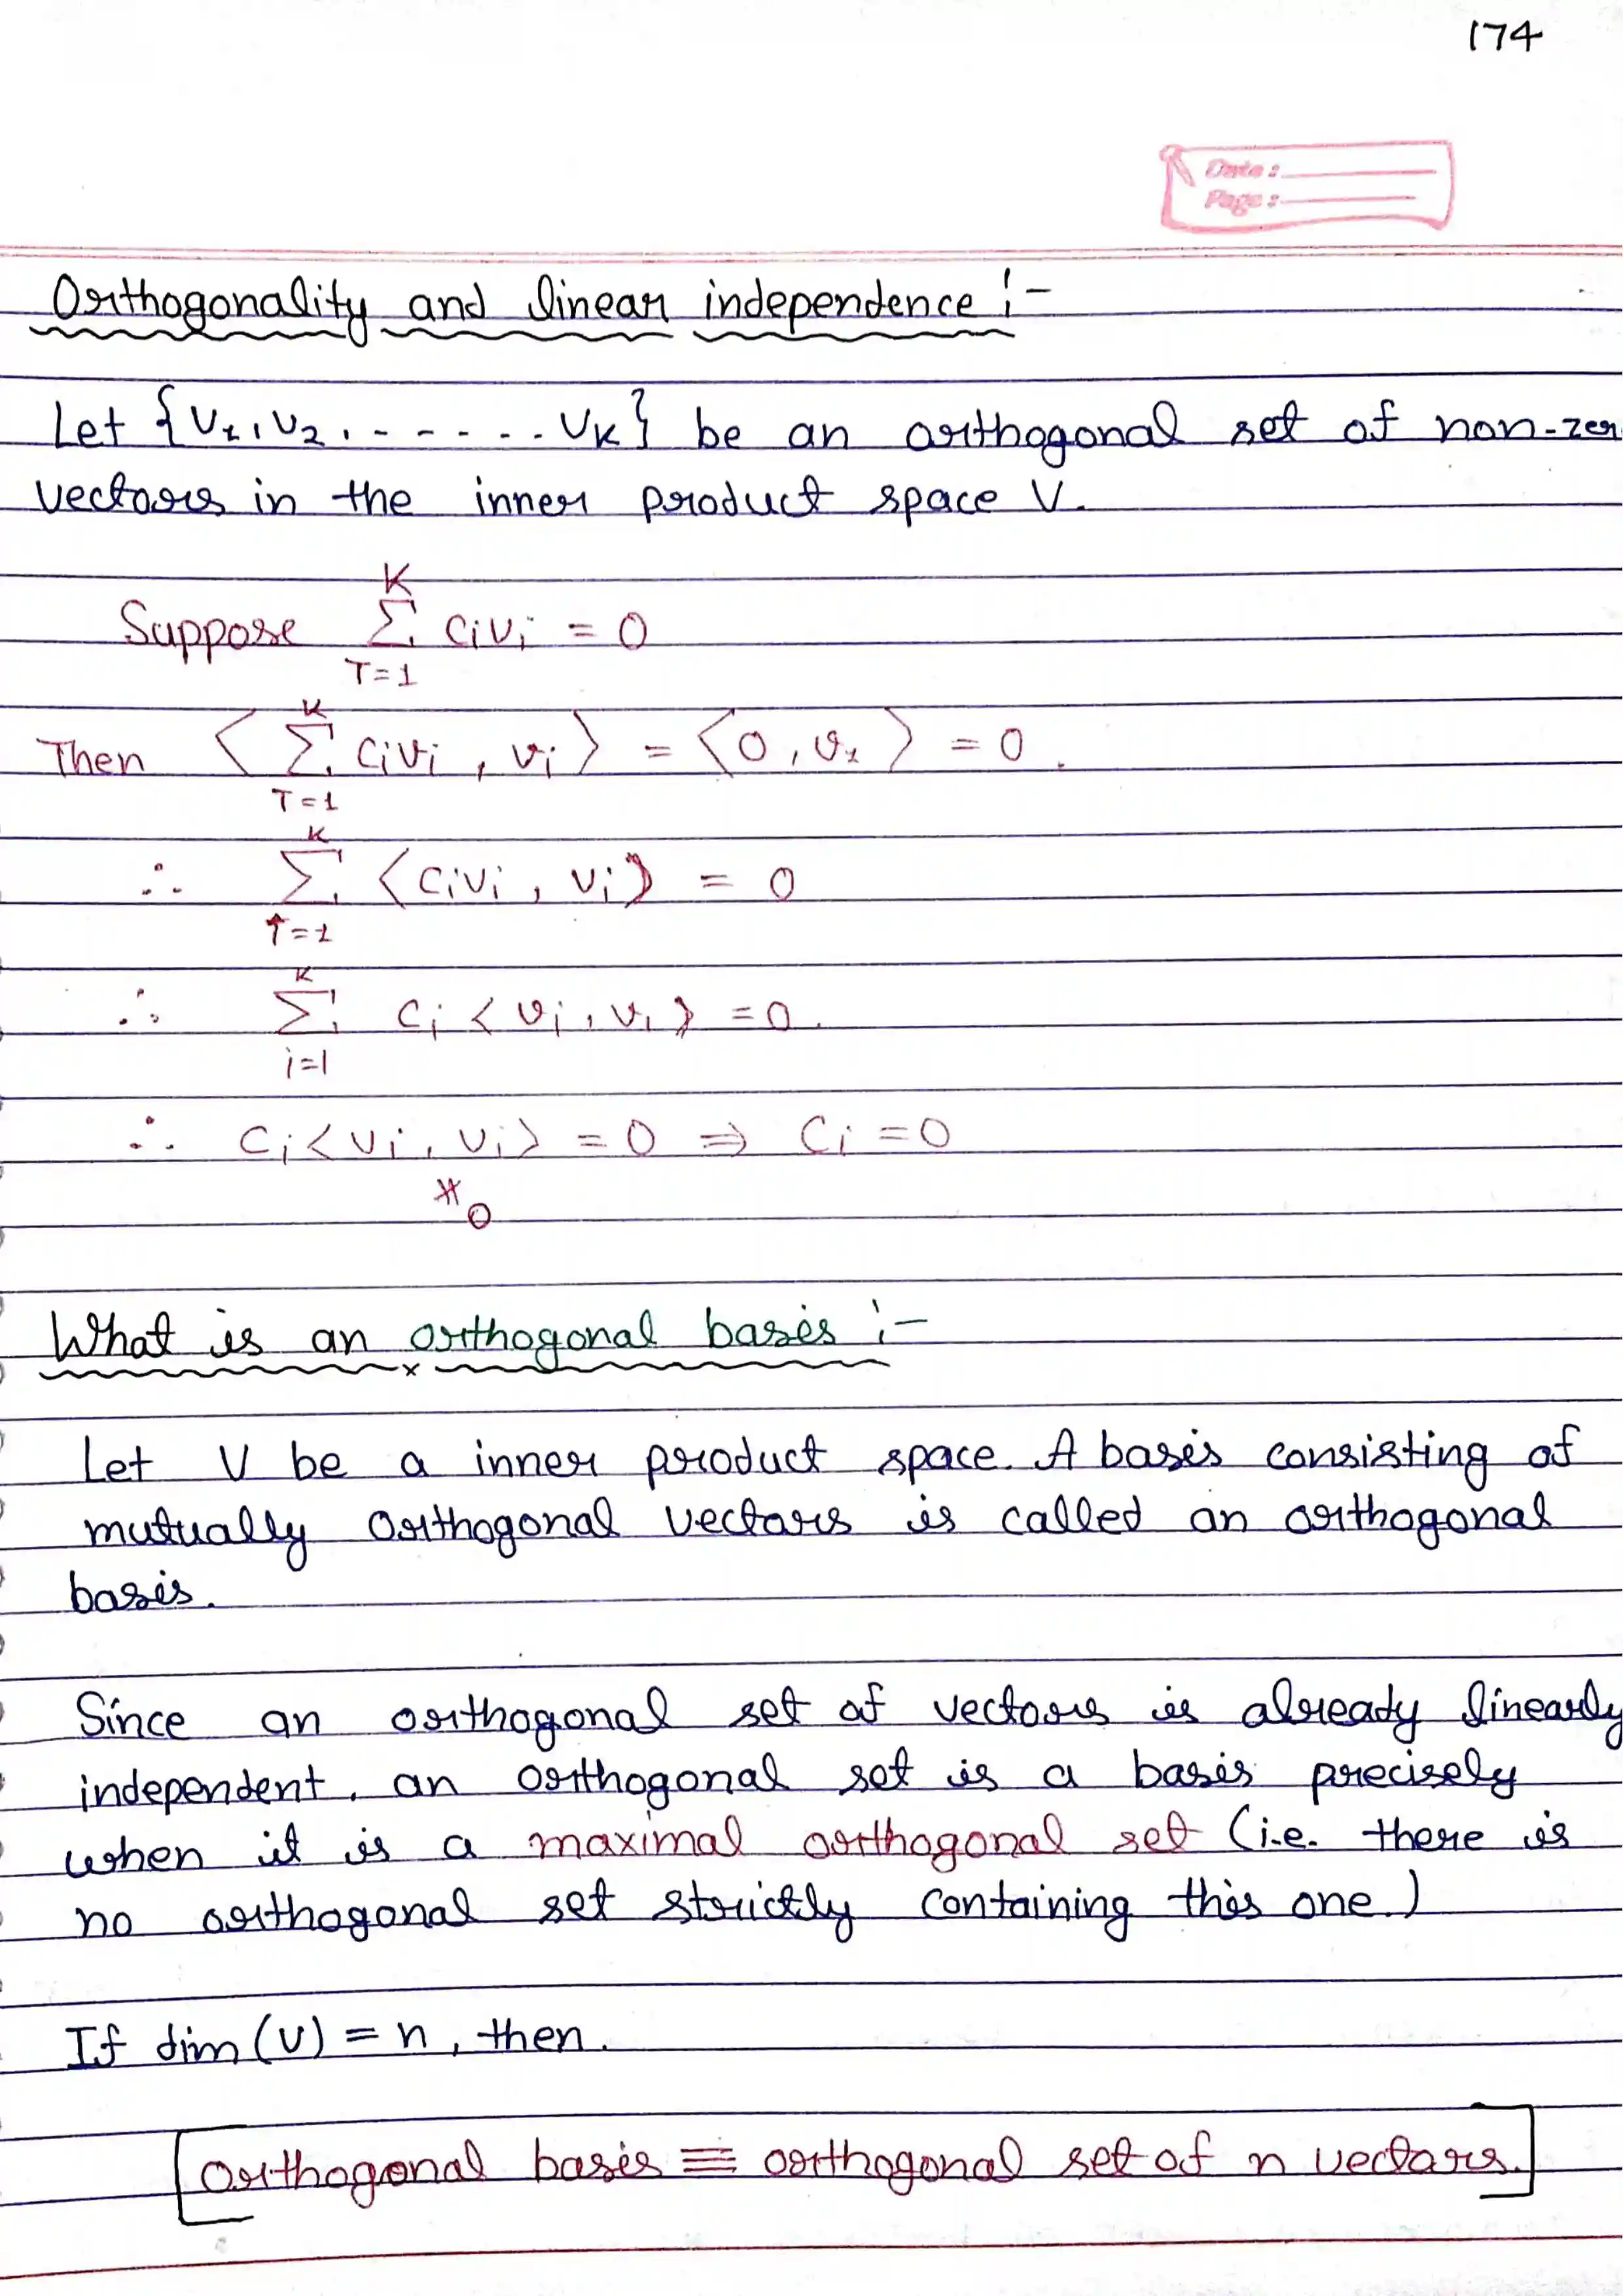 174
Date :
Page :
Orthogonality and linear independence :-
Let {v₁, v₂, ------ vₖ} be an orthogonal set of non-zer
vectors in the inner product space V.
Suppose K∑T=1 cᵢvᵢ = 0
Then ⟨ K∑T=1 cᵢvᵢ , vᵢ ⟩ = ⟨0, v₁⟩ = 0.
∴ K∑T=1 ⟨cᵢvᵢ , vᵢ⟩ = 0
∴ K∑i=1 cᵢ ⟨vᵢ, vᵢ⟩ = 0.
∴ cᵢ⟨vᵢ, vᵢ⟩ = 0 ⇒ cᵢ = 0
≠ 0
What is an orthogonal basis :-
Let V be a inner product space. A basis consisting of
mutually orthogonal vectors is called an orthogonal
basis.
Since an orthogonal set of vectors is already linearly
independent, an orthogonal set is a basis precisely
when it is a maximal orthogonal set (i.e. there is
no orthogonal set strictly containing this one.)
If dim (V) = n, then.
Orthogonal basis ≡ orthogonal set of n vectors.